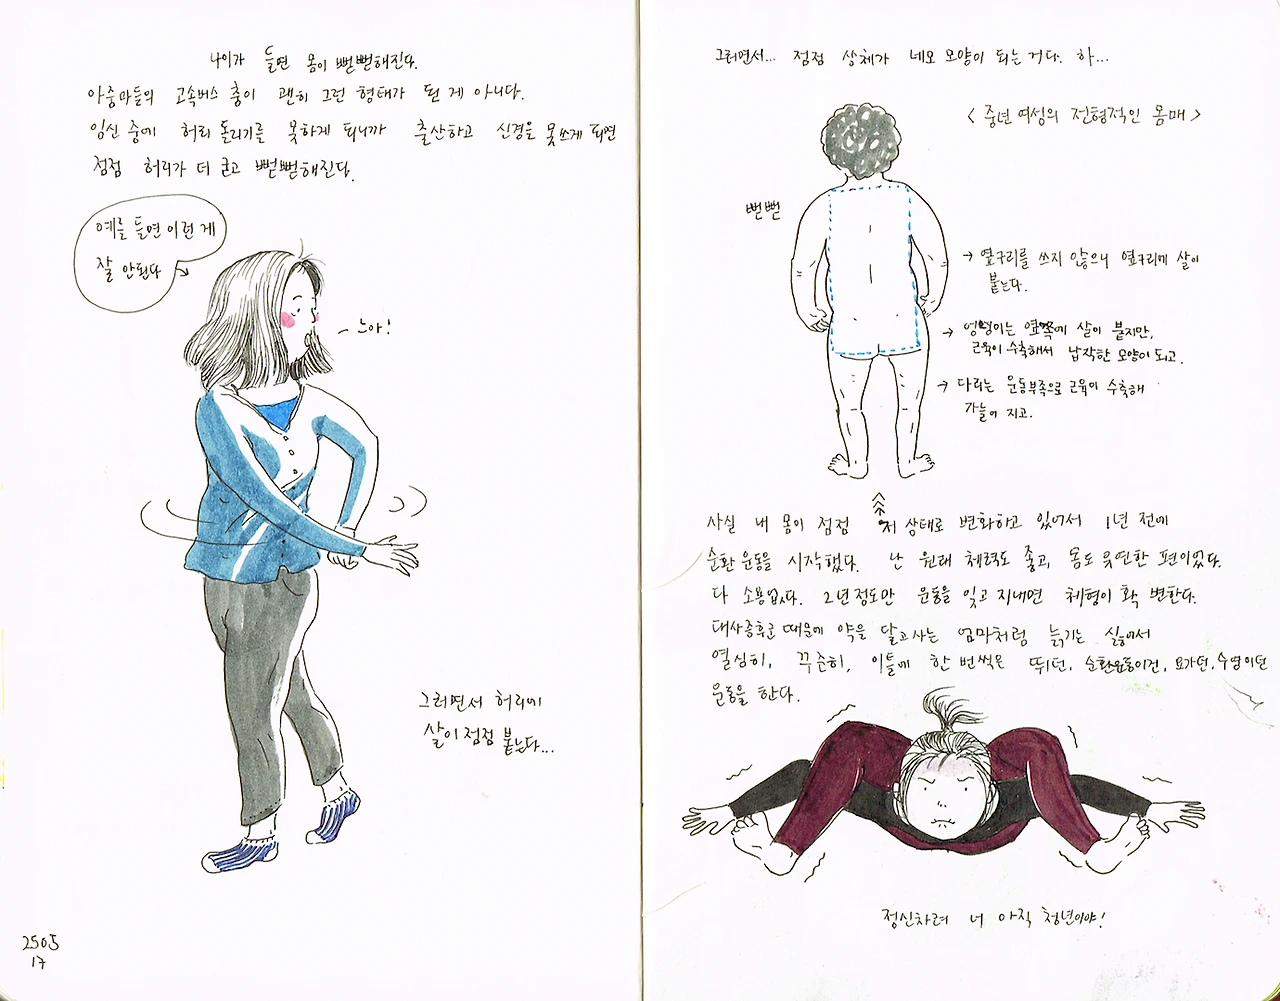 나이가 들면 몸이 뻗뻗해진다.
아줌마들의 고속버스 춤이 괜히 그런 형태가 된 게 아니다.
임신 중에 허리 돌리기를 못하게 되니까 출산하고 신경을 못쓰게 되면
점점 허리가 더 굳고 뻗뻗해진다.
예를 들면 이런 게
잘 안된다
느아!
그러면서 허리에
살이 점점 붙는다...
2505
17
그러면서... 점점 상체가 네모 모양이 되는 거다. 하...
< 중년 여성의 전형적인 몸매 >
뻗뻗
→ 옆구리를 쓰지 않으니 옆구리에 살이
붙는다.
→ 엉덩이는 옆쪽에 살이 붙지만,
근육이 수축해서 납작한 모양이 되고.
→ 다리는 운동부족으로 근육이 수축해
가늘어 지고.
사실 내 몸이 점점 저 상태로 변화하고 있어서 1년 전에
순환 운동을 시작했다. 난 원래 체력도 좋고, 몸도 유연한 편이었다.
다 소용없다. 2년 정도만 운동을 잊고 지내면 체형이 확 변한다.
대사증후군 때문에 약을 달고 사는 엄마처럼 늙기는 싫어서
열심히, 꾸준히, 이틀에 한 번씩은 뛰던, 순환운동이건, 요가던, 수영이던
운동을 한다.
정신차려 너 아직 청년이야!